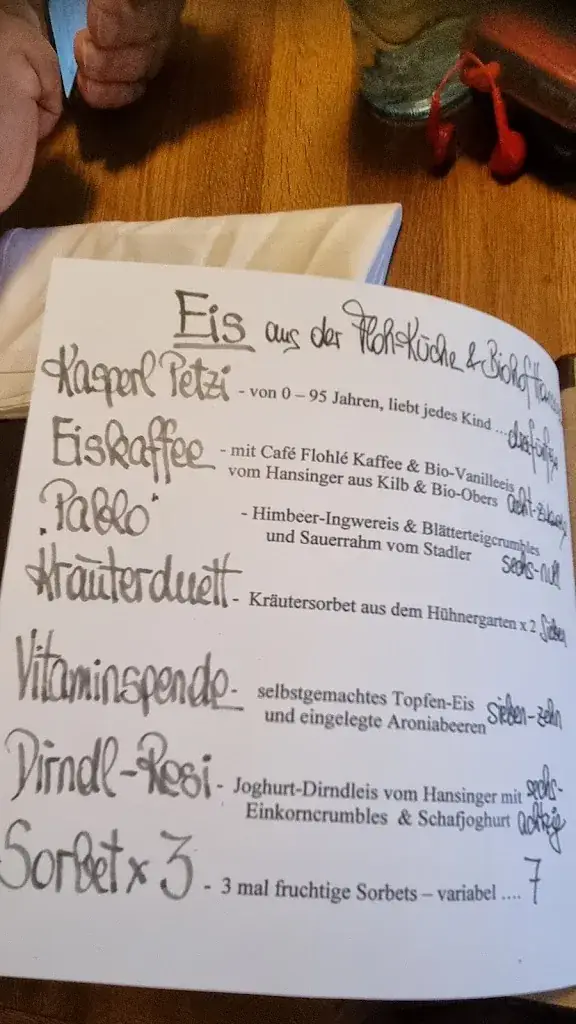 Eis aus der Floh-Küche & Biohof
Kasperl Petzi - von 0 – 95 Jahren, liebt jedes Kind ... dreifünfzig
Eiskaffee - mit Café Flohlé Kaffee & Bio-Vanilleeis
vom Hansinger aus Kilb & Bio-Obers
„Pablo“ - Himbeer-Ingwereis & Blätterteigcrumbles
und Sauerrahm vom Stadler sechs-null
Kräuterduett - Kräutersorbet aus dem Hühnergarten x 2 Sieben
Vitaminspende - selbstgemachtes Topfen-Eis
und eingelegte Aroniabeeren sieben-zehn
Dirndl-Resi - Joghurt-Dirndleis vom Hansinger mit sechs-
Einkorncrumbles & Schafjoghurt achtzig
Sorbet x 3 - 3 mal fruchtige Sorbets – variabel .... 7